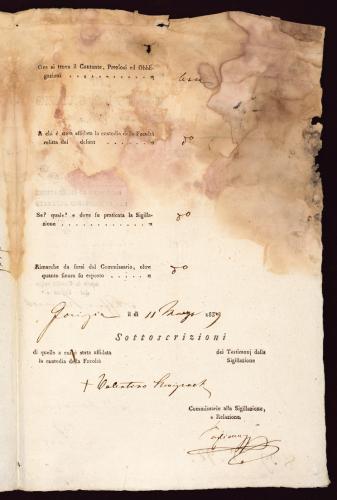 Ove si trova il Contante, Preziosi ed Obbli-
gazioni . . . . . . . . . . . . "
A chi è stata affidata la custodia della Facoltà
relitta dal defont . . . . . . "
do
Se? quale? e dove fu praticata la Sigilla-
zione . . . . . . . . . . . . . "
do
Rimarche da farsi dal Commissario, oltre
quanto finora fu esposto . . . . . "
do
Gorizia il dì 11 Marzo 1839
Sottoscrizioni
di quello a cui è stata affidata
la custodia della Facoltà
dei Testimonj dalla
Sigillazione
+ Valentino
Commissario alla Sigillazione,
e Relazione.